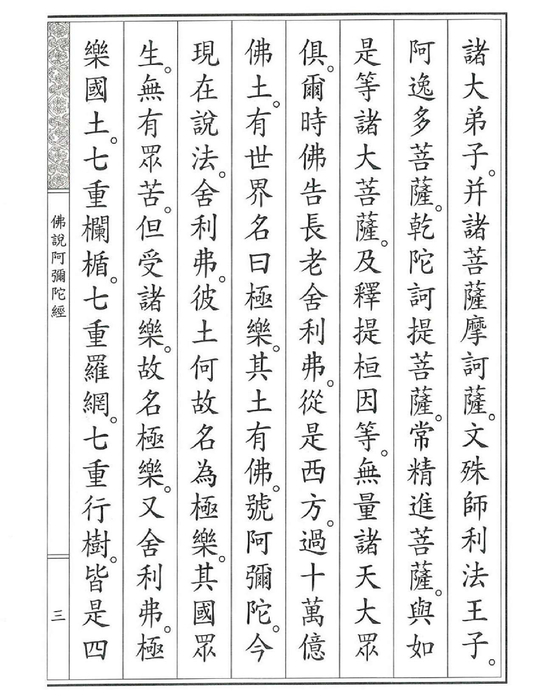 諸大弟子。并諸菩薩摩訶薩。文殊師利法王子。
阿逸多菩薩。乾陀訶提菩薩。常精進菩薩。與如
是等諸大菩薩。及釋提桓因等。無量諸天大眾
俱。爾時佛告長老舍利弗。從是西方。過十萬億
佛土。有世界名曰極樂。其土有佛。號阿彌陀。今
現在說法。舍利弗。彼土何故名為極樂。其國眾
生。無有眾苦。但受諸樂。故名極樂。又舍利弗。極
樂國土。七重欄楯。七重羅網。七重行樹。皆是四
佛說阿彌陀經
三